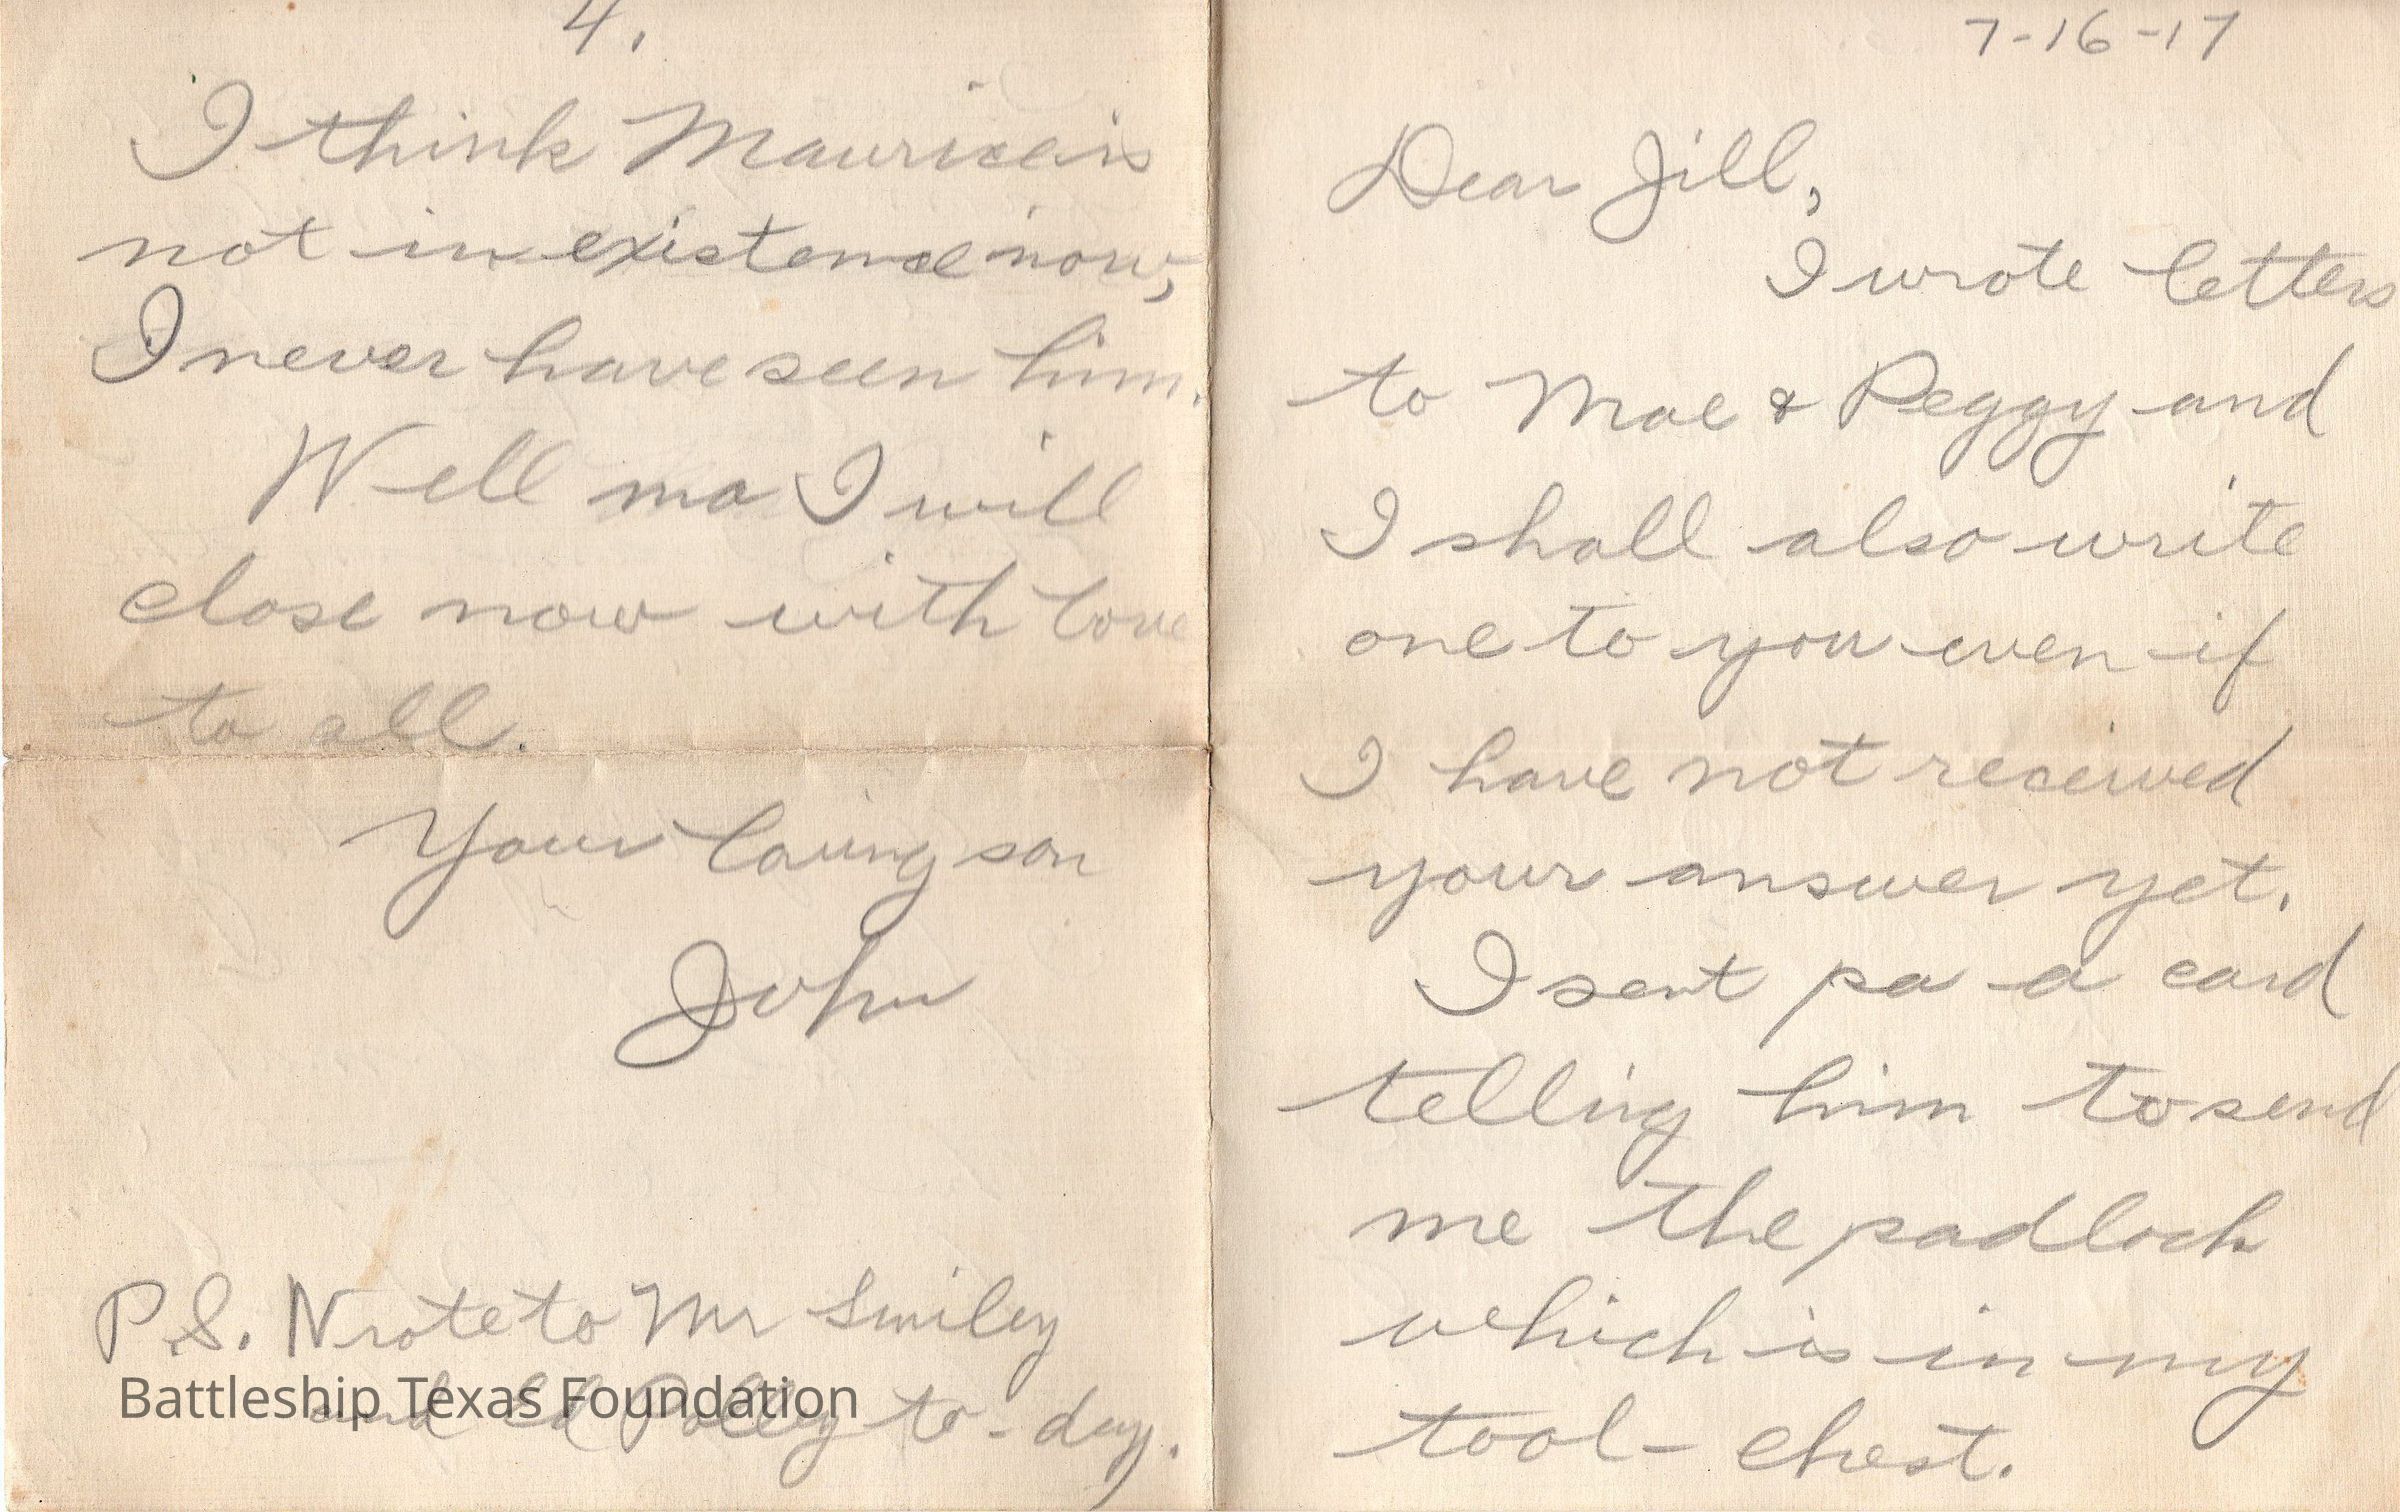 4.
I think Maurice is
not in existence now,
I never have seen him.
Well ma I will
close now with love
to all.
Your loving son
John
P.S. Wrote to Mr Smiley
and Ed Polley to-day.
Battleship Texas Foundation
7-16-17
Dear Jill,
I wrote letters
to Mae & Peggy and
I shall also write
one to you even if
I have not received
your answer yet.
I sent pa a card
telling him to send
me the padlock
which is in my
tool-chest.